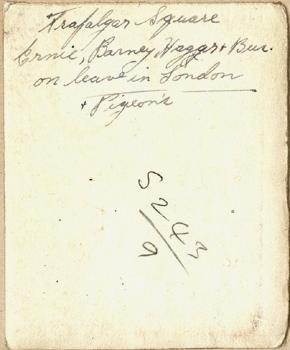 Trafalgar Square
Ernie, Barney, Haggar + Bus.
on leave in London
+ Pigeon's
5243
9